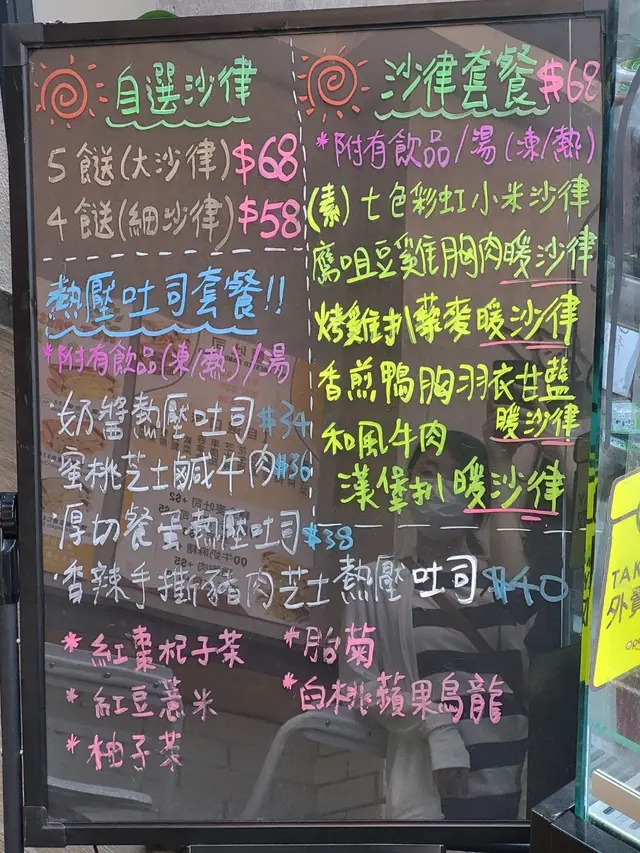 自選沙律
5餸(大沙律)$68
4餸(細沙律)$58
熱壓吐司套餐!!
*附有飲品(凍/熱)/湯
奶醬熱壓吐司$34
蜜桃芝士鹹牛肉$36
厚切餐蛋熱壓吐司$38
香辣手撕豬肉芝士熱壓吐司$40
沙律套餐$68
*附有飲品/湯(凍/熱)
(素)七色彩虹小米沙律
鷹咀豆雞胸肉暖沙律
烤雞扒藜麥暖沙律
香煎鴨胸羽衣甘藍
暖沙律
和風牛肉
漢堡扒暖沙律
*紅棗杞子茶
*紅豆薏米
*柚子茶
*胎菊
*白桃蘋果烏龍
TAK
外賣